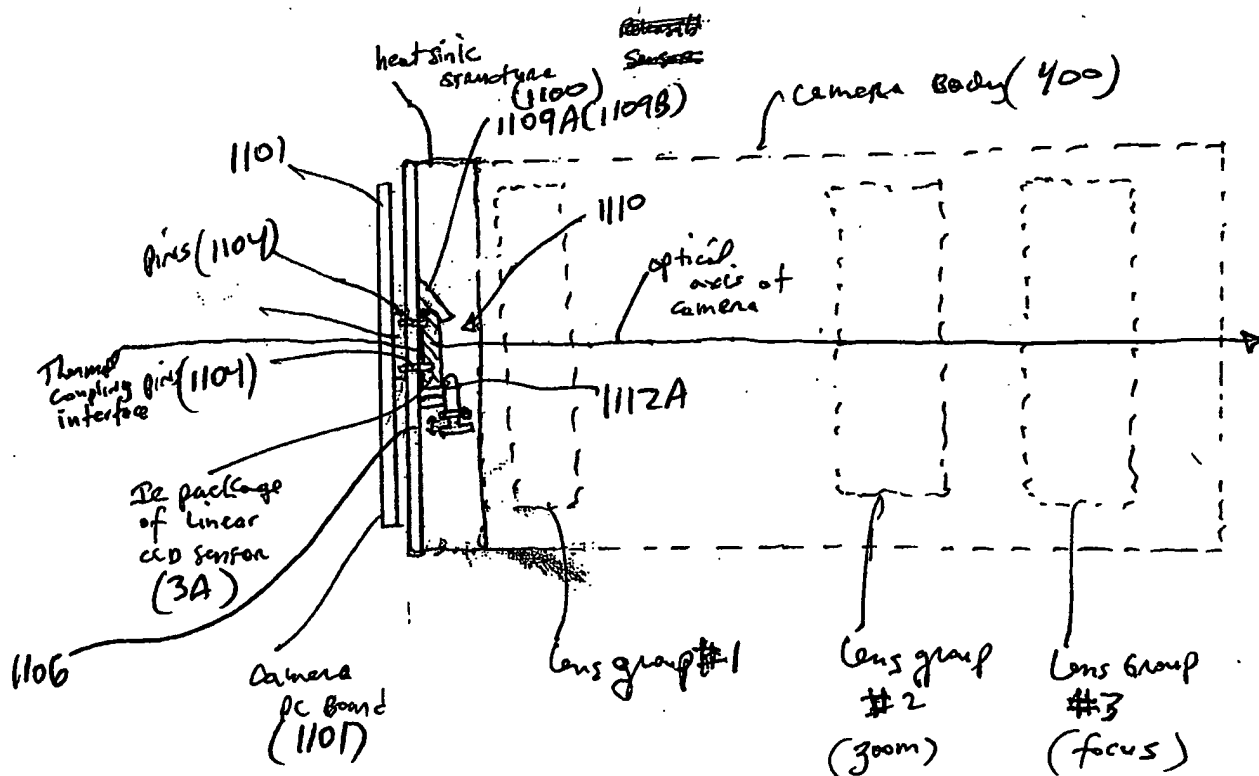 heatsink
structure
(1100)
1109A(1109B)
camera Body (400)
1101
pins (1104)
1110
optical
axis of
camera
Thermal
coupling
interface
pins (1104)
1112A
IC package
of Linear
CCD sensor
(3A)
1106
Camera
PC Board
(1101)
Lens group #1
Lens group
#2
(zoom)
Lens Group
#3
(focus)